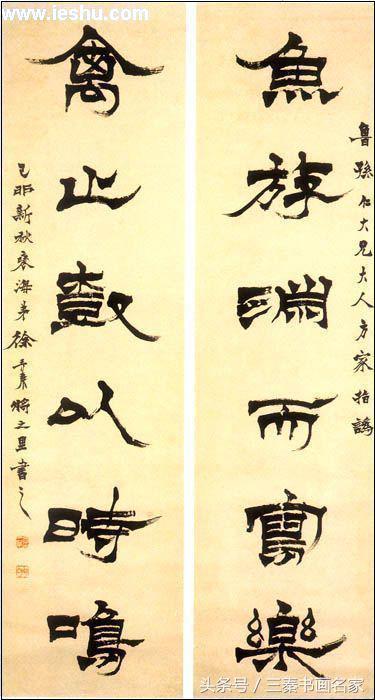 www.ieshu.com
魯孫仁大兄大人方家指謬
魚斿淵而寫樂
禽止鼓以時鳴
己卯新秋褎海弟徐三庚將之里書之
头条号／三秦书画名家